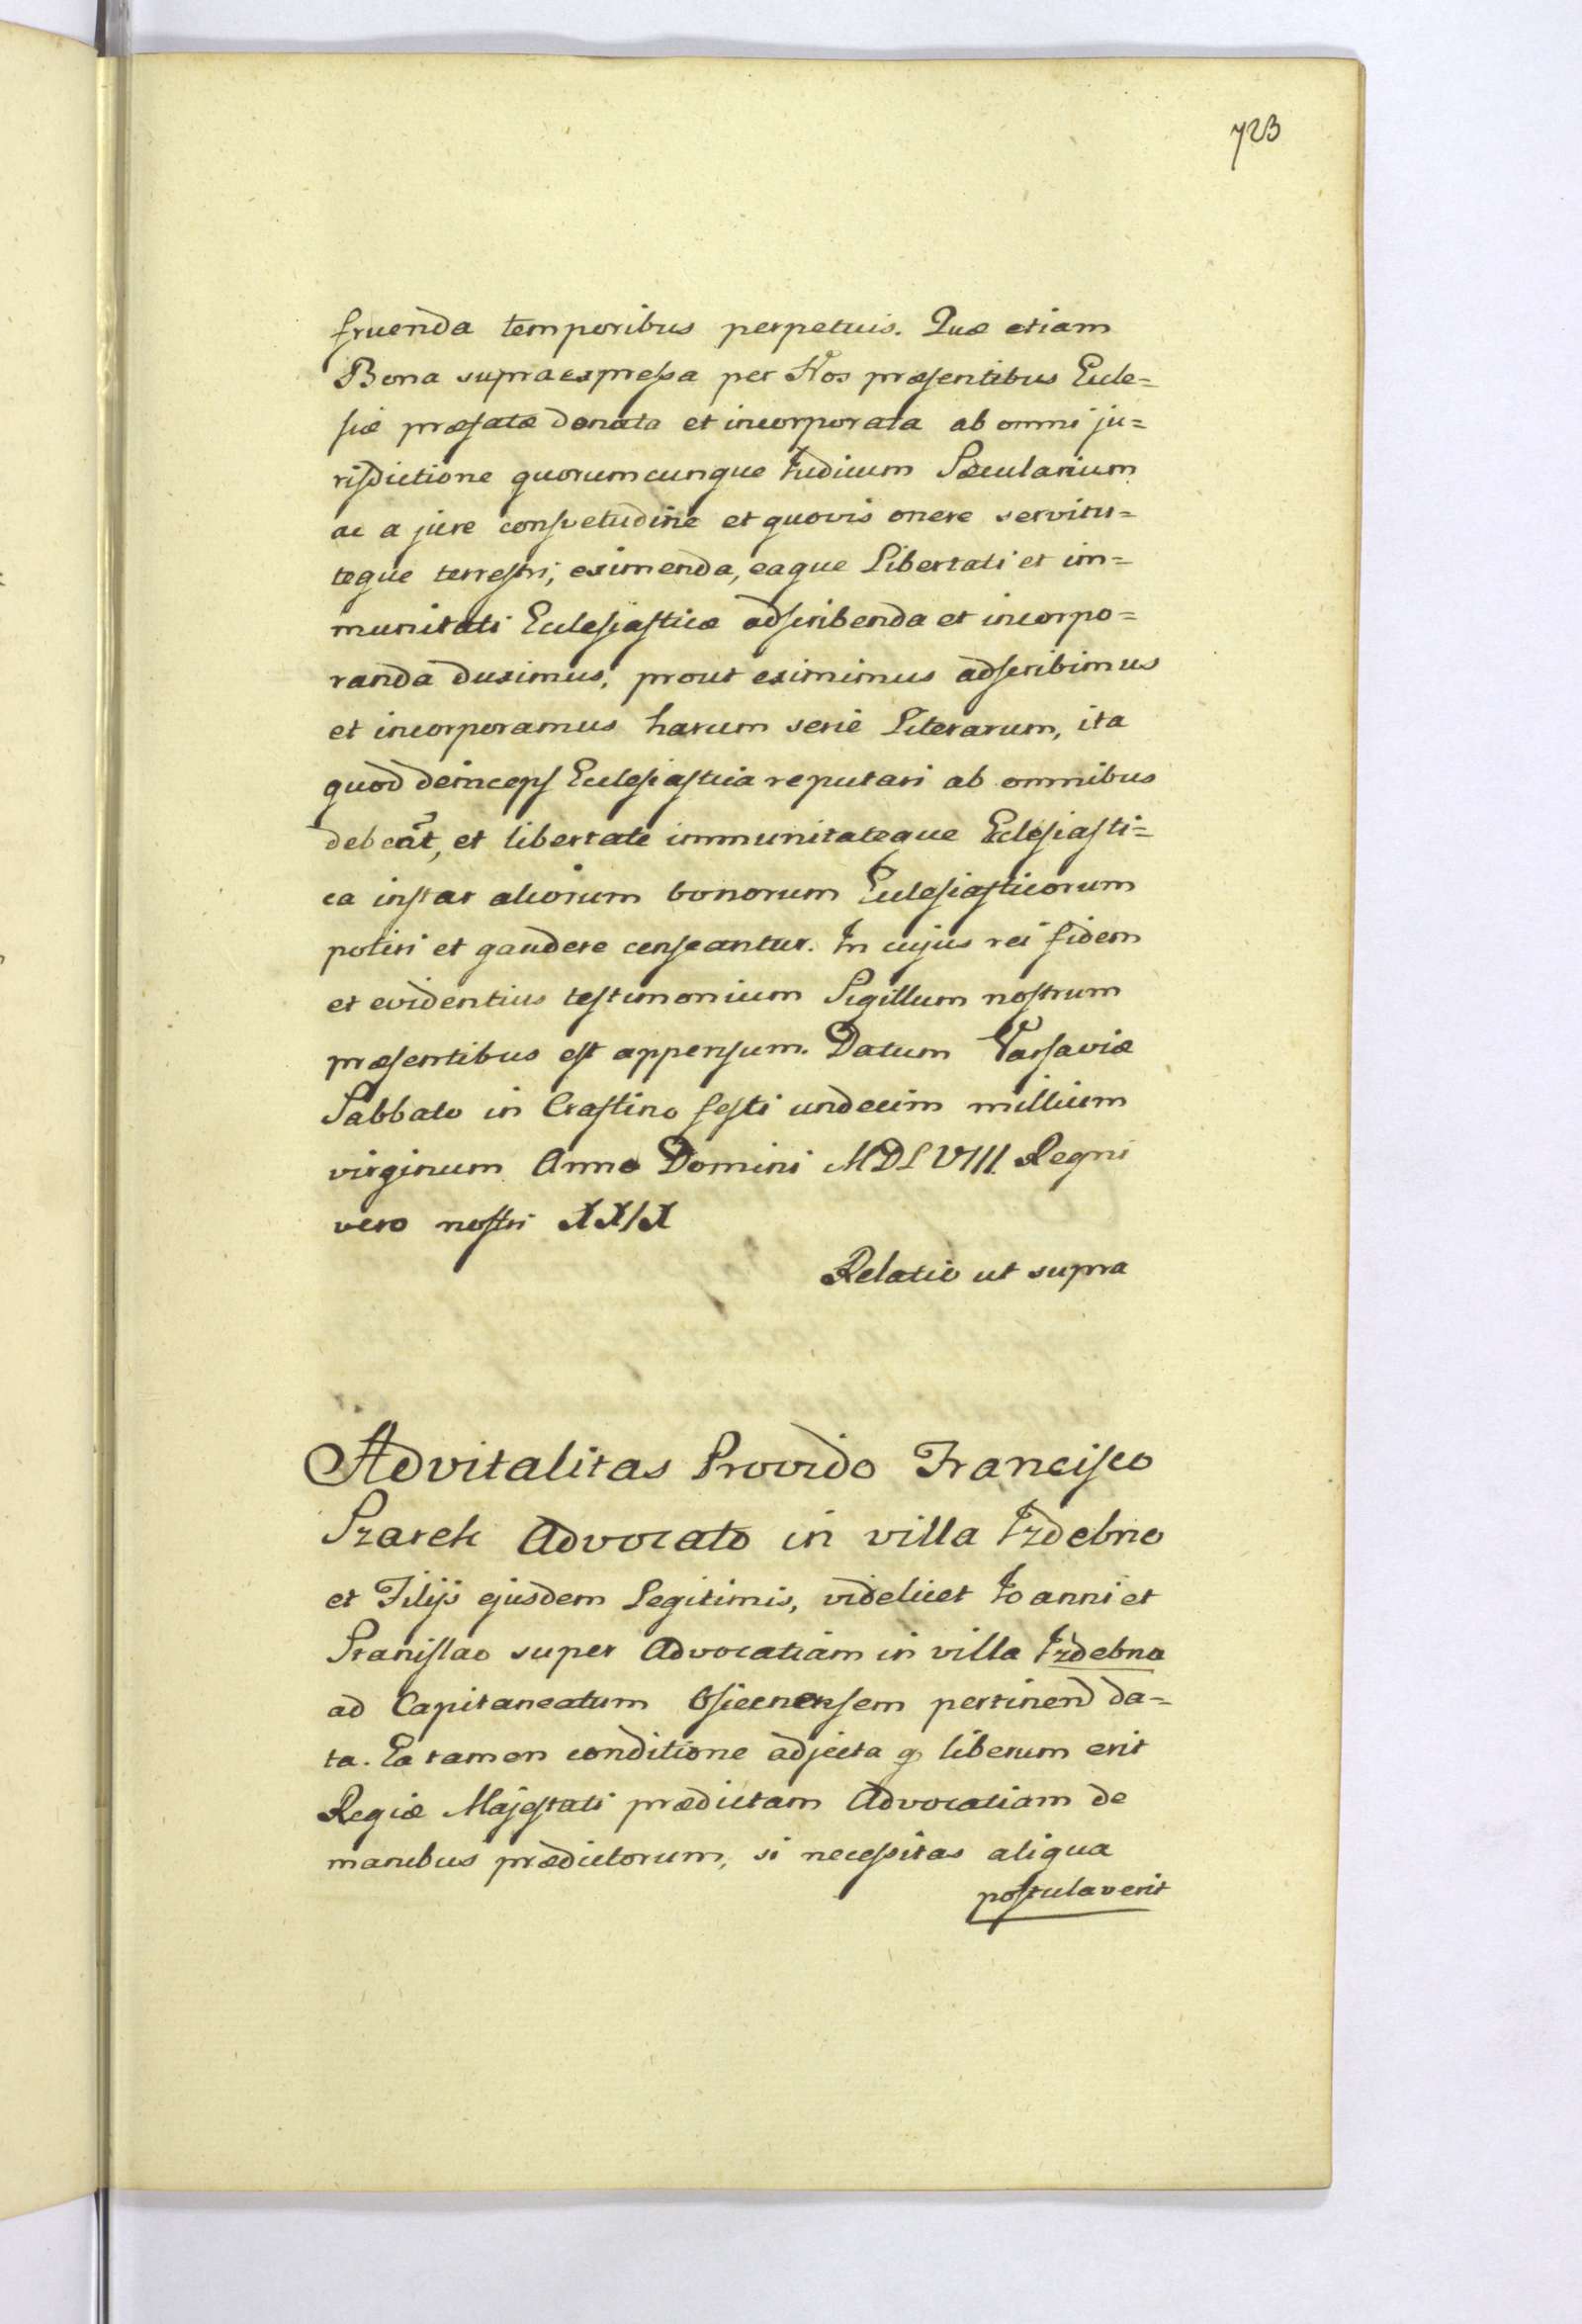 723
fruenda temporibus perpetuis. Quæ etiam
Bona supraexpreſsa per Nos præſentibus Eccle=
ſiæ præfatæ donata et incorporata ab omni ju=
riſdictione quorumcunque Judicum Sæcularium
ac a jure conſvetudine et quovis onere servitu=
teque terreſtri, eximenda, eaque Libertati et im=
munitati Eccleſiaſticæ adſcribenda et incorpo=
randa duximus, prout eximimus adſcribimus
et incorporamus harum serie Literarum, ita
quod deincepſ Eccleſiaſtica reputari ab omnibus
debeāt, et libertate immunitateque Ecleſiaſti=
ca inſtar aliorum bonorum Eccleſiaſticorum
potiri et gaudere cenſeantur. In cujus rei fidem
et evidentius teſtimonium Sigillum noſtrum
præſentibus eſt appenſum. Datum Varſaviæ
Sabbato in Craſtino feſti undecim millium
virginum Anno Domini MDLVIII Regni
vero noſtri XXIX
Relatio ut supra
Advitalitas Provido Franciſco
Szarek Advocato in villa Izdebno
et Filijs ejusdem Legitimis, videlicet Joanni et
Staniſlao super Advocatiam in villa Izdebna
ad Capitaneatum Oſiecnensem pertinend da=
ta. Ea tamen conditione adjecta q̄ liberum erit
Regiæ Majeſtati prædictam Advocatiam de
manibus prædictorum, si neceſsitas aliqua
poſtulaverit